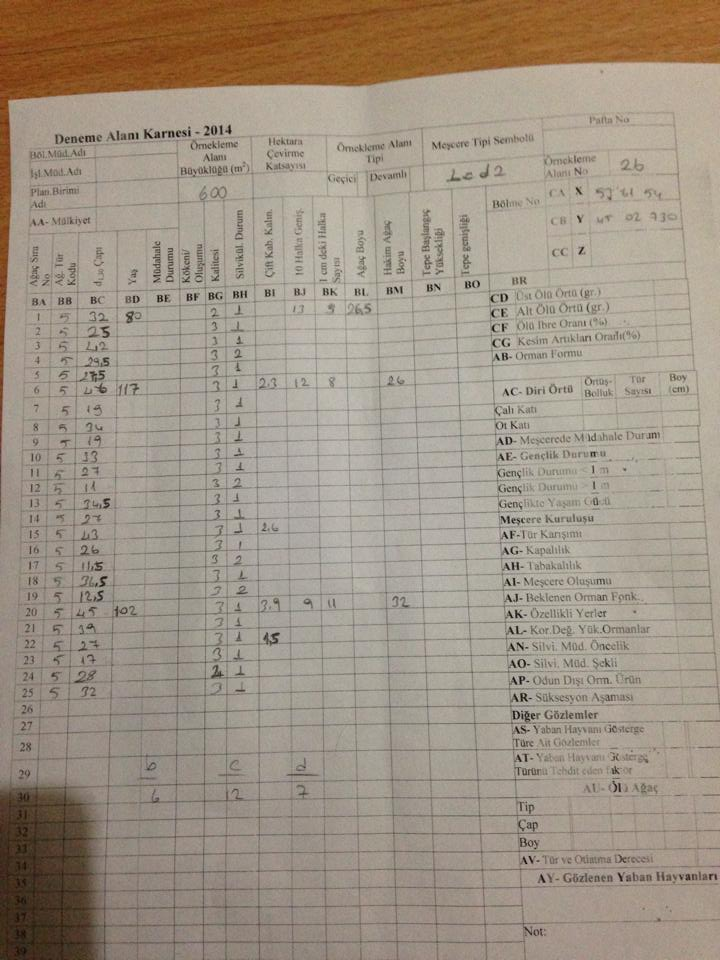 Deneme Alanı Karnesi - 2014
Pafta No
Böl.Müd.Adı
İşl.Müd.Adı
Plan.Birimi Adı
AA- Mülkiyet
Örnekleme Alanı Büyüklüğü (m²)
600
Hektara Çevirme Katsayısı
Örnekleme Alanı Tipi
Geçici Devamlı
Meşcere Tipi Sembolü
Lcd2
Örnekleme Alanı No 26
Bölme No
CA X 57 61 54
CB Y 45 02 730
CC Z
Ağaç Sıra No
Ağ. Tür Kodu
d1,30 Çapı
Yaş
Müdahale Durumu
Kökeni/Oluşumu
Kalitesi
Silvikül. Durum
Çift Kab. Kalın.
10 Halka Geniş.
1 cm deki Halka Sayısı
Ağaç Boyu
Hakim Ağaç Boyu
Tepe Başlangıç Yüksekliği
Tepe genişliği
BA BB BC BD BE BF BG BH BI BJ BK BL BM BN BO BR
1 5 32 80 2 1 13 9 26,5
2 5 25 3 1
3 5 42 3 1
4 5 29,5 3 2
5 5 27,5 3 1
6 5 46 117 3 1 2.3 12 8 26
7 5 19 3 1
8 5 34 3 1
9 5 19 3 1
10 5 33 3 1
11 5 27 3 1
12 5 11 3 2
13 5 34,5 3 1
14 5 27 3 1
15 5 43 3 1 2.6
16 5 26 3 1
17 5 11,5 3 2
18 5 36,5 3 1
19 5 12,5 3 2
20 5 45 102 3 1 3.9 9 11 32
21 5 39 3 1
22 5 27 3 1 1,5
23 5 17 3 1
24 5 28 1
25 5 32 3 1
26
27
28
29 b c d
30 6 12 7
31
32
33
34
35
36
37
38
39
CD Üst Ölü Örtü (gr.)
CE Alt Ölü Örtü (gr.)
CF Ölü İbre Oranı (%)
CG Kesim Artıkları Oranı(%)
AB- Orman Formu
AC- Diri Örtü Örtüş-Bolluk Tür Sayısı Boy (cm)
Çalı Katı
Ot Katı
AD- Meşcerede Müdahale Durum
AE- Gençlik Durumu
Gençlik Durumu < 1 m
Gençlik Durumu > 1 m
Gençlikte Yaşam Gücü
Meşcere Kuruluşu
AF-Tür Karışımı
AG- Kapalılık
AH- Tabakalılık
AI- Meşcere Oluşumu
AJ- Beklenen Orman Fonk.
AK- Özellikli Yerler
AL- Kor.Değ. Yük.Ormanlar
AN- Silvi. Müd. Öncelik
AO- Silvi. Müd. Şekli
AP- Odun Dışı Orm. Ürün
AR- Süksesyon Aşaması
Diğer Gözlemler
AS- Yaban Hayvanı Gösterge
Türe Ait Gözlemler
AT- Yaban Hayvanı Gösterge
Türünü Tehdit eden faktör
AU- Ölü Ağaç
Tip
Çap
Boy
AV- Tür ve Otlatma Derecesi
AY- Gözlenen Yaban Hayvanları
Not: